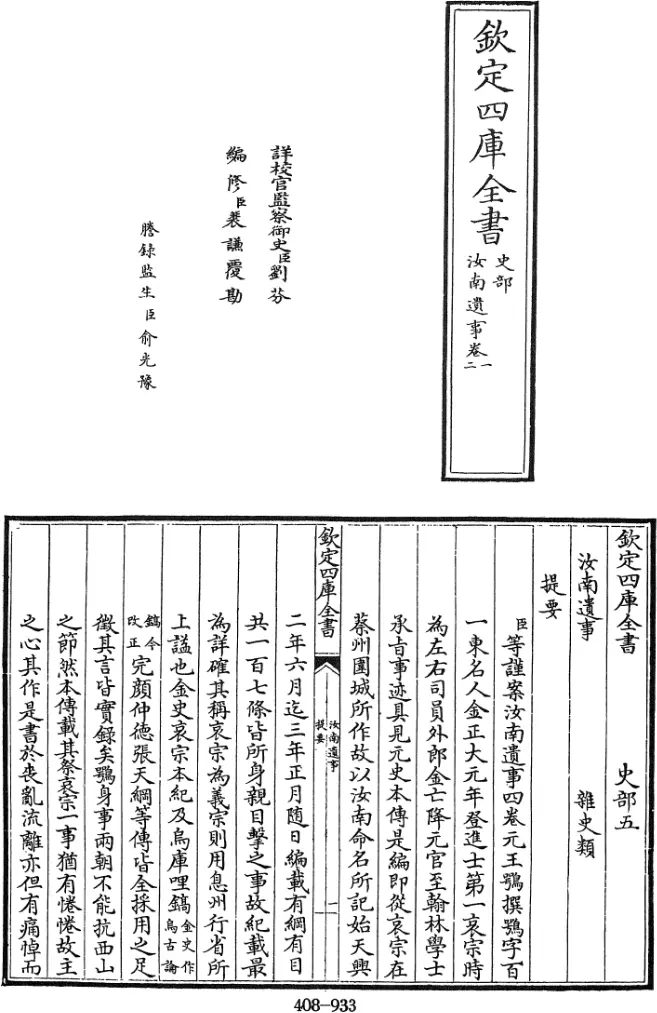 欽定四庫全書
史部
汝南遺事卷一
二
詳校官監察御史臣劉芬
編修臣裴謙覆勘
謄錄監生臣俞光豫
欽定四庫全書 史部五
汝南遺事 雜史類
提要
臣等謹案汝南遺事四卷元王鶚撰鶚字百
一東名人金正大元年登進士第一哀宗時
為左右司員外郎金亡降元官至翰林學士
承旨事迹具見元史本傳是編即從哀宗在
蔡州圍城所作故以汝南命名所記始天興
欽定四庫全書
汝南遺事
提要
一
二年六月迄三年正月随日編載有綱有目
共一百七條皆所身親目擊之事故紀載最
為詳確其稱哀宗為義宗則用息州行省所
上謚也金史哀宗本紀及烏庫哩鎬金史作烏古論
鎬今改正完顔仲德張天綱等傳皆全採用之足
徵其言皆實録矣鶚身事兩朝不能抗西山
之節然本傳載其祭哀宗一事猶有惓惓故主
之心其作是書於喪亂流離亦但有痛悼而
408-933